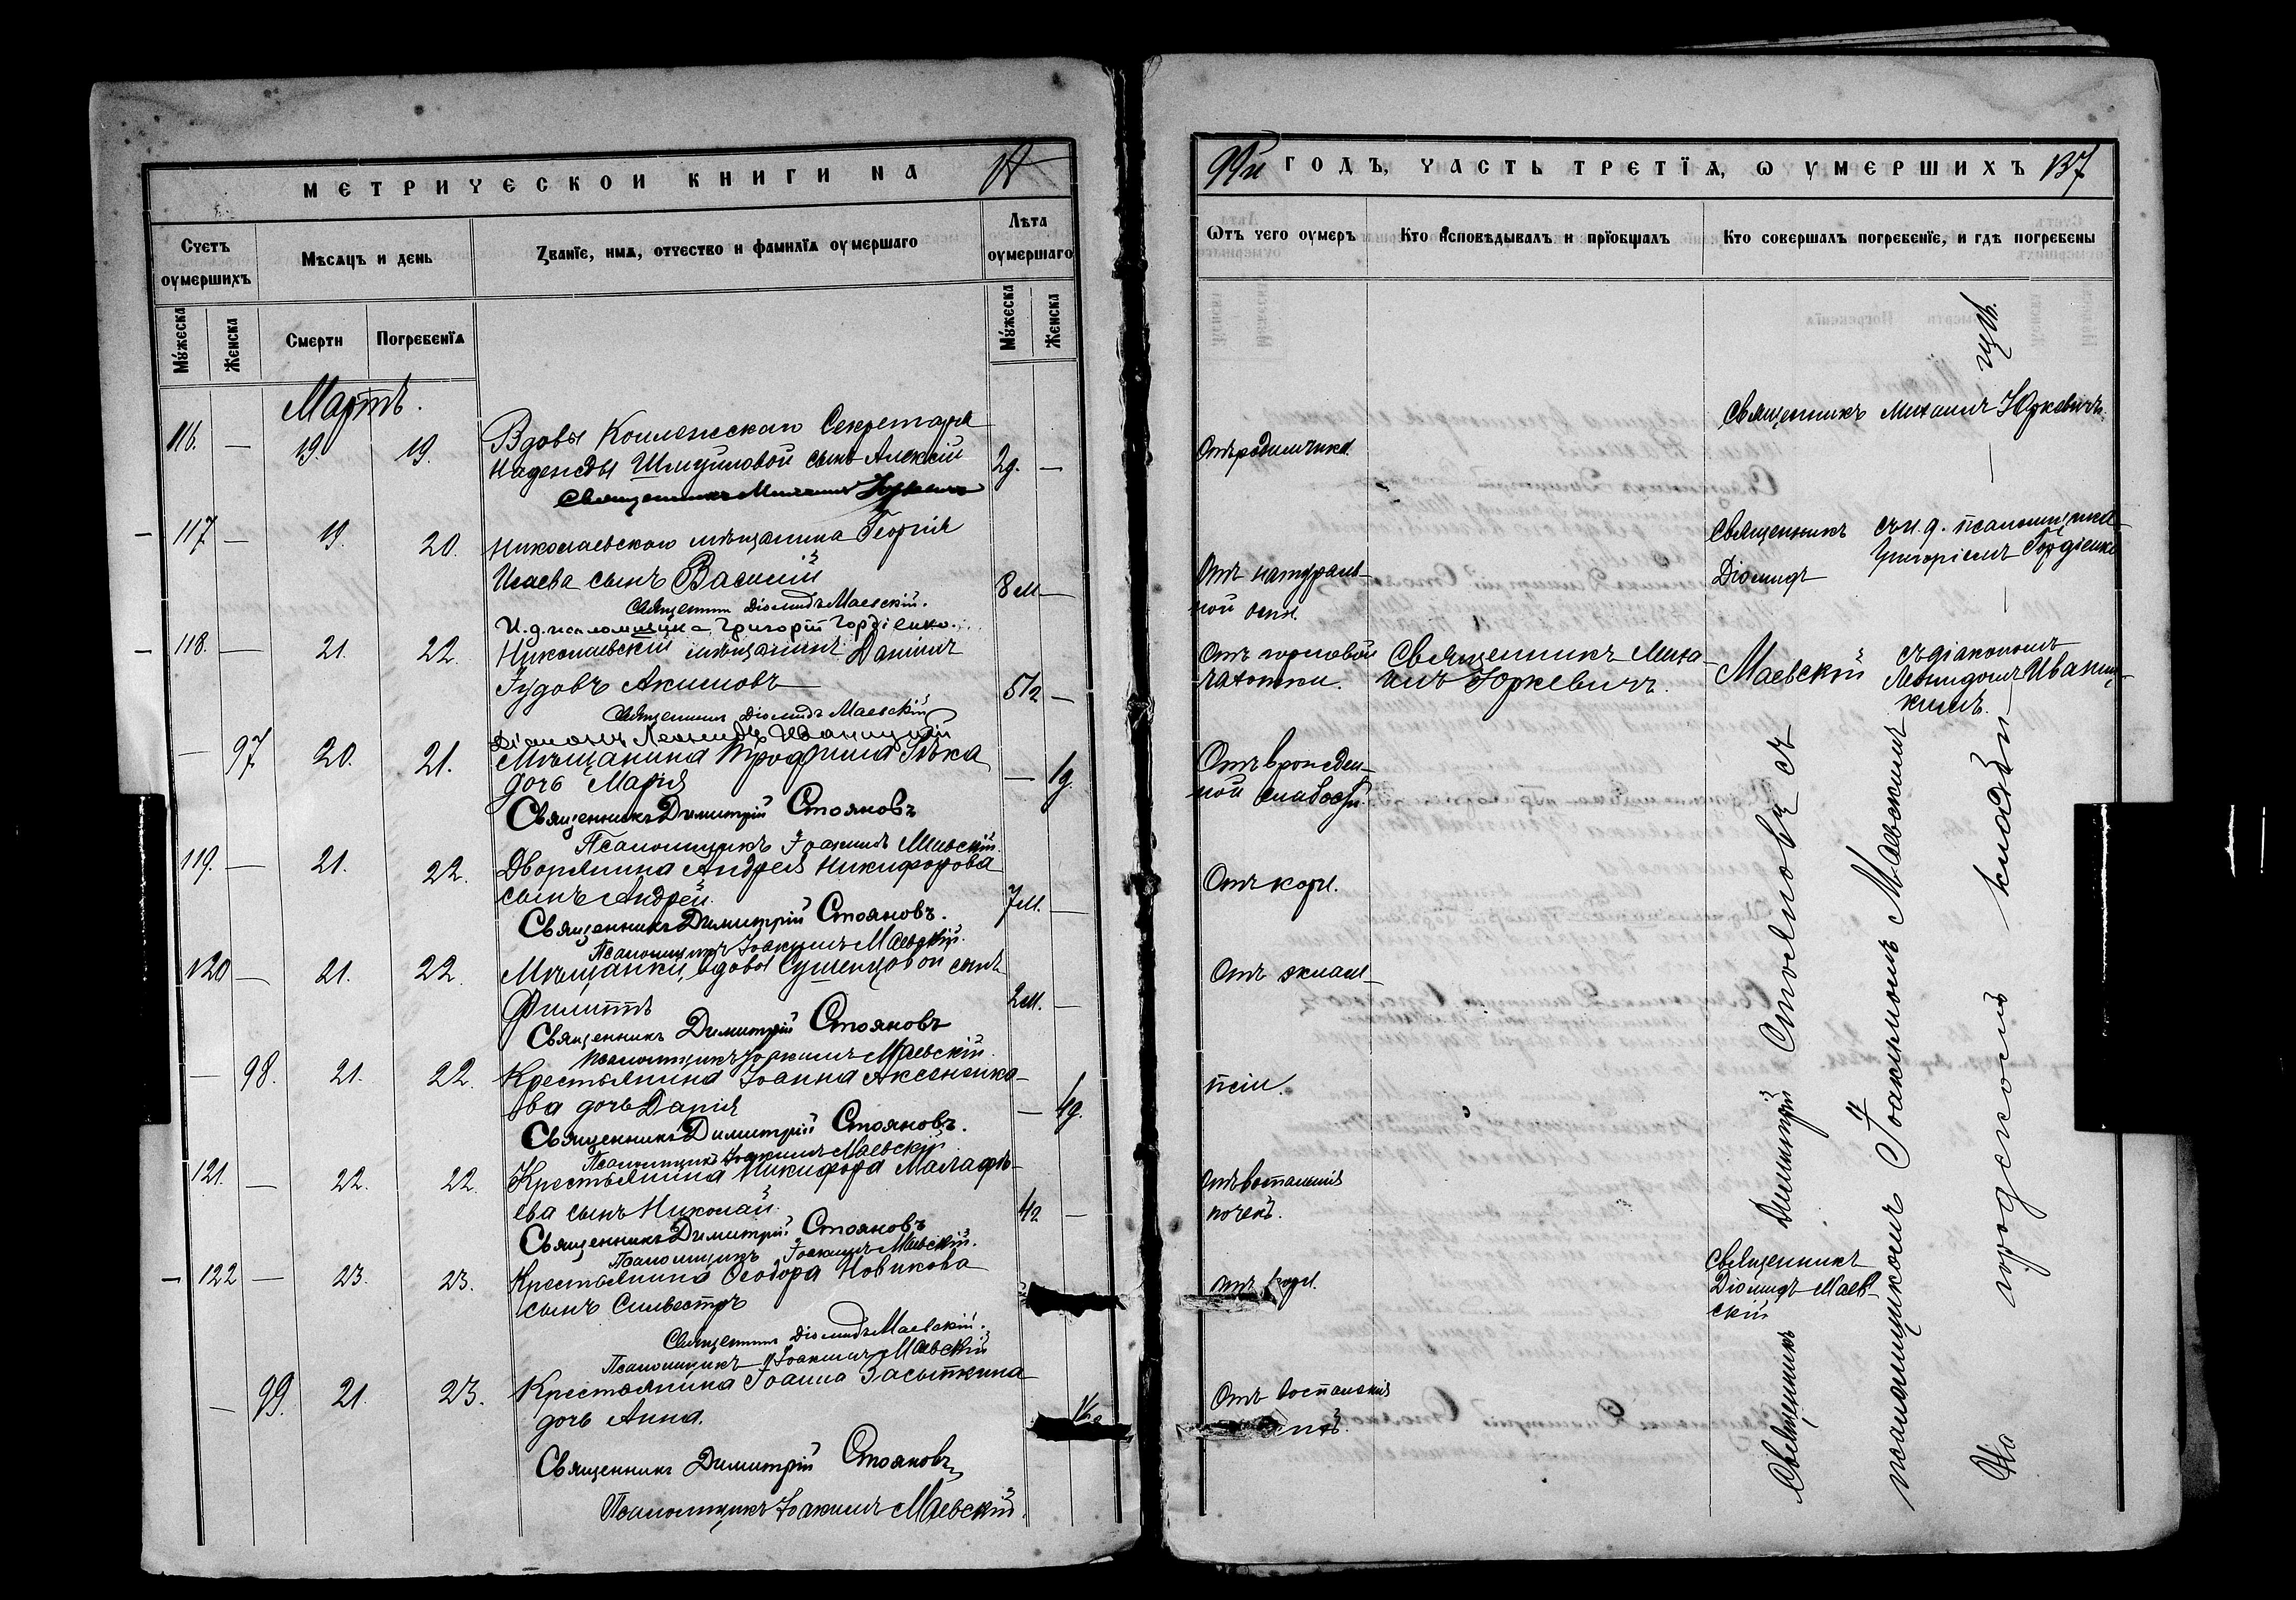 МЕТРИЧЕСКОЙ КНИГИ НА 18
Счетъ оумершихъ
Мѣсяцъ и день
Званїе, имя, отчество и фамилїя оумершаго
Лѣта оумершаго
Мꙋжеска
Женска
Смерти
Погребенїя
Мꙋжеска
Женска
Мартъ.
116. — 19. 19. Вдовы Коллежскаго Секретаря
Надежды сынъ Алексій 2д. —
Священникъ Михаилъ Юркевичъ
117 — 19. 20. Николаевскаго мѣщанина Георгія
Исаева сынъ Василій 8м —
Священникъ Діомидъ Маевскій.
И.д. псаломщика Григорій Гордіенко.
118. — 21. 22. Николаевскій мѣщанинъ Даніилъ
Іудовъ Акимовъ 51г —
Священникъ Діомидъ Маевскій
Діаконъ Леонидъ Иваницкій
— 97 20. 21. Мѣщанина Трофима
дочь Марія — 1д.
Священникъ Димитрій Стояновъ
Псаломщикъ Іоакимъ Маевскій.
119. — 21. 22. Дворянина Андрея Никифорова
сынъ Андрей. 7м. —
Священникъ Димитрій Стояновъ.
Псаломщикъ Іоакимъ Маевскій.
120 — 21. 22. Мѣщанки, вдовы сынъ
Филиппъ 2м. —
Священникъ Димитрій Стояновъ
Псаломщикъ Іоакимъ Маевскій.
— 98. 21. 22. Крестьянина Іоанна
ва дочь Дарія —
Священникъ Димитрій Стояновъ.
Псаломщикъ Іоакимъ Маевскій
121. — 22. 22. Крестьянина Никифора Малафѣ-
ева сынъ Николай. 4г —
Священникъ Димитрій Стояновъ
Псаломщикъ Іоакимъ Маевскій.
— 122 — 23. 23. Крестьянина Ѳеодора Новикова
сынъ Сильвестръ
Священникъ Діомидъ Маевскій.
Псаломщикъ Іоакимъ Маевскій
— 99. 21. 23. Крестьянина Іоанна Засыпкина
дочь Анна.
Священникъ Димитрій Стояновъ
Псаломщикъ Іоакимъ Маевскій.
99й ГОДЪ, ЧАСТЬ ТРЕТЇѦ, Ѡ ѸМЕРШИХЪ 137
Ѿтъ чего оумеръ
Кто исповѣдывалъ и прїобщалъ
Кто совершалъ погребенїе, и гдѣ погребены
Отъ родимчика.
Священникъ Михаилъ Юркевичъ.
Отъ натураль-
ной оспы.
Священникъ
Діомидъ
Маевскій
съ и. д. псаломщика
Григоріемъ Гордіенко
Отъ горловой
чахотки.
Священникъ Миха-
илъ Юркевичъ.
съ діакономъ
Леонидомъ Иваниц-
кимъ.
Отъ врожден-
ной слабости.
Отъ кори.
Отъ эклам-
псіи.
Отъ воспаленія
почекъ.
Отъ кори.
Священникъ
Діомидъ Маев-
скій
Отъ воспаленія
Священникъ Димитрій Стояновъ съ
псаломщикомъ Іоакимомъ Маевскимъ
На городскомъ кладби-
щѣ.